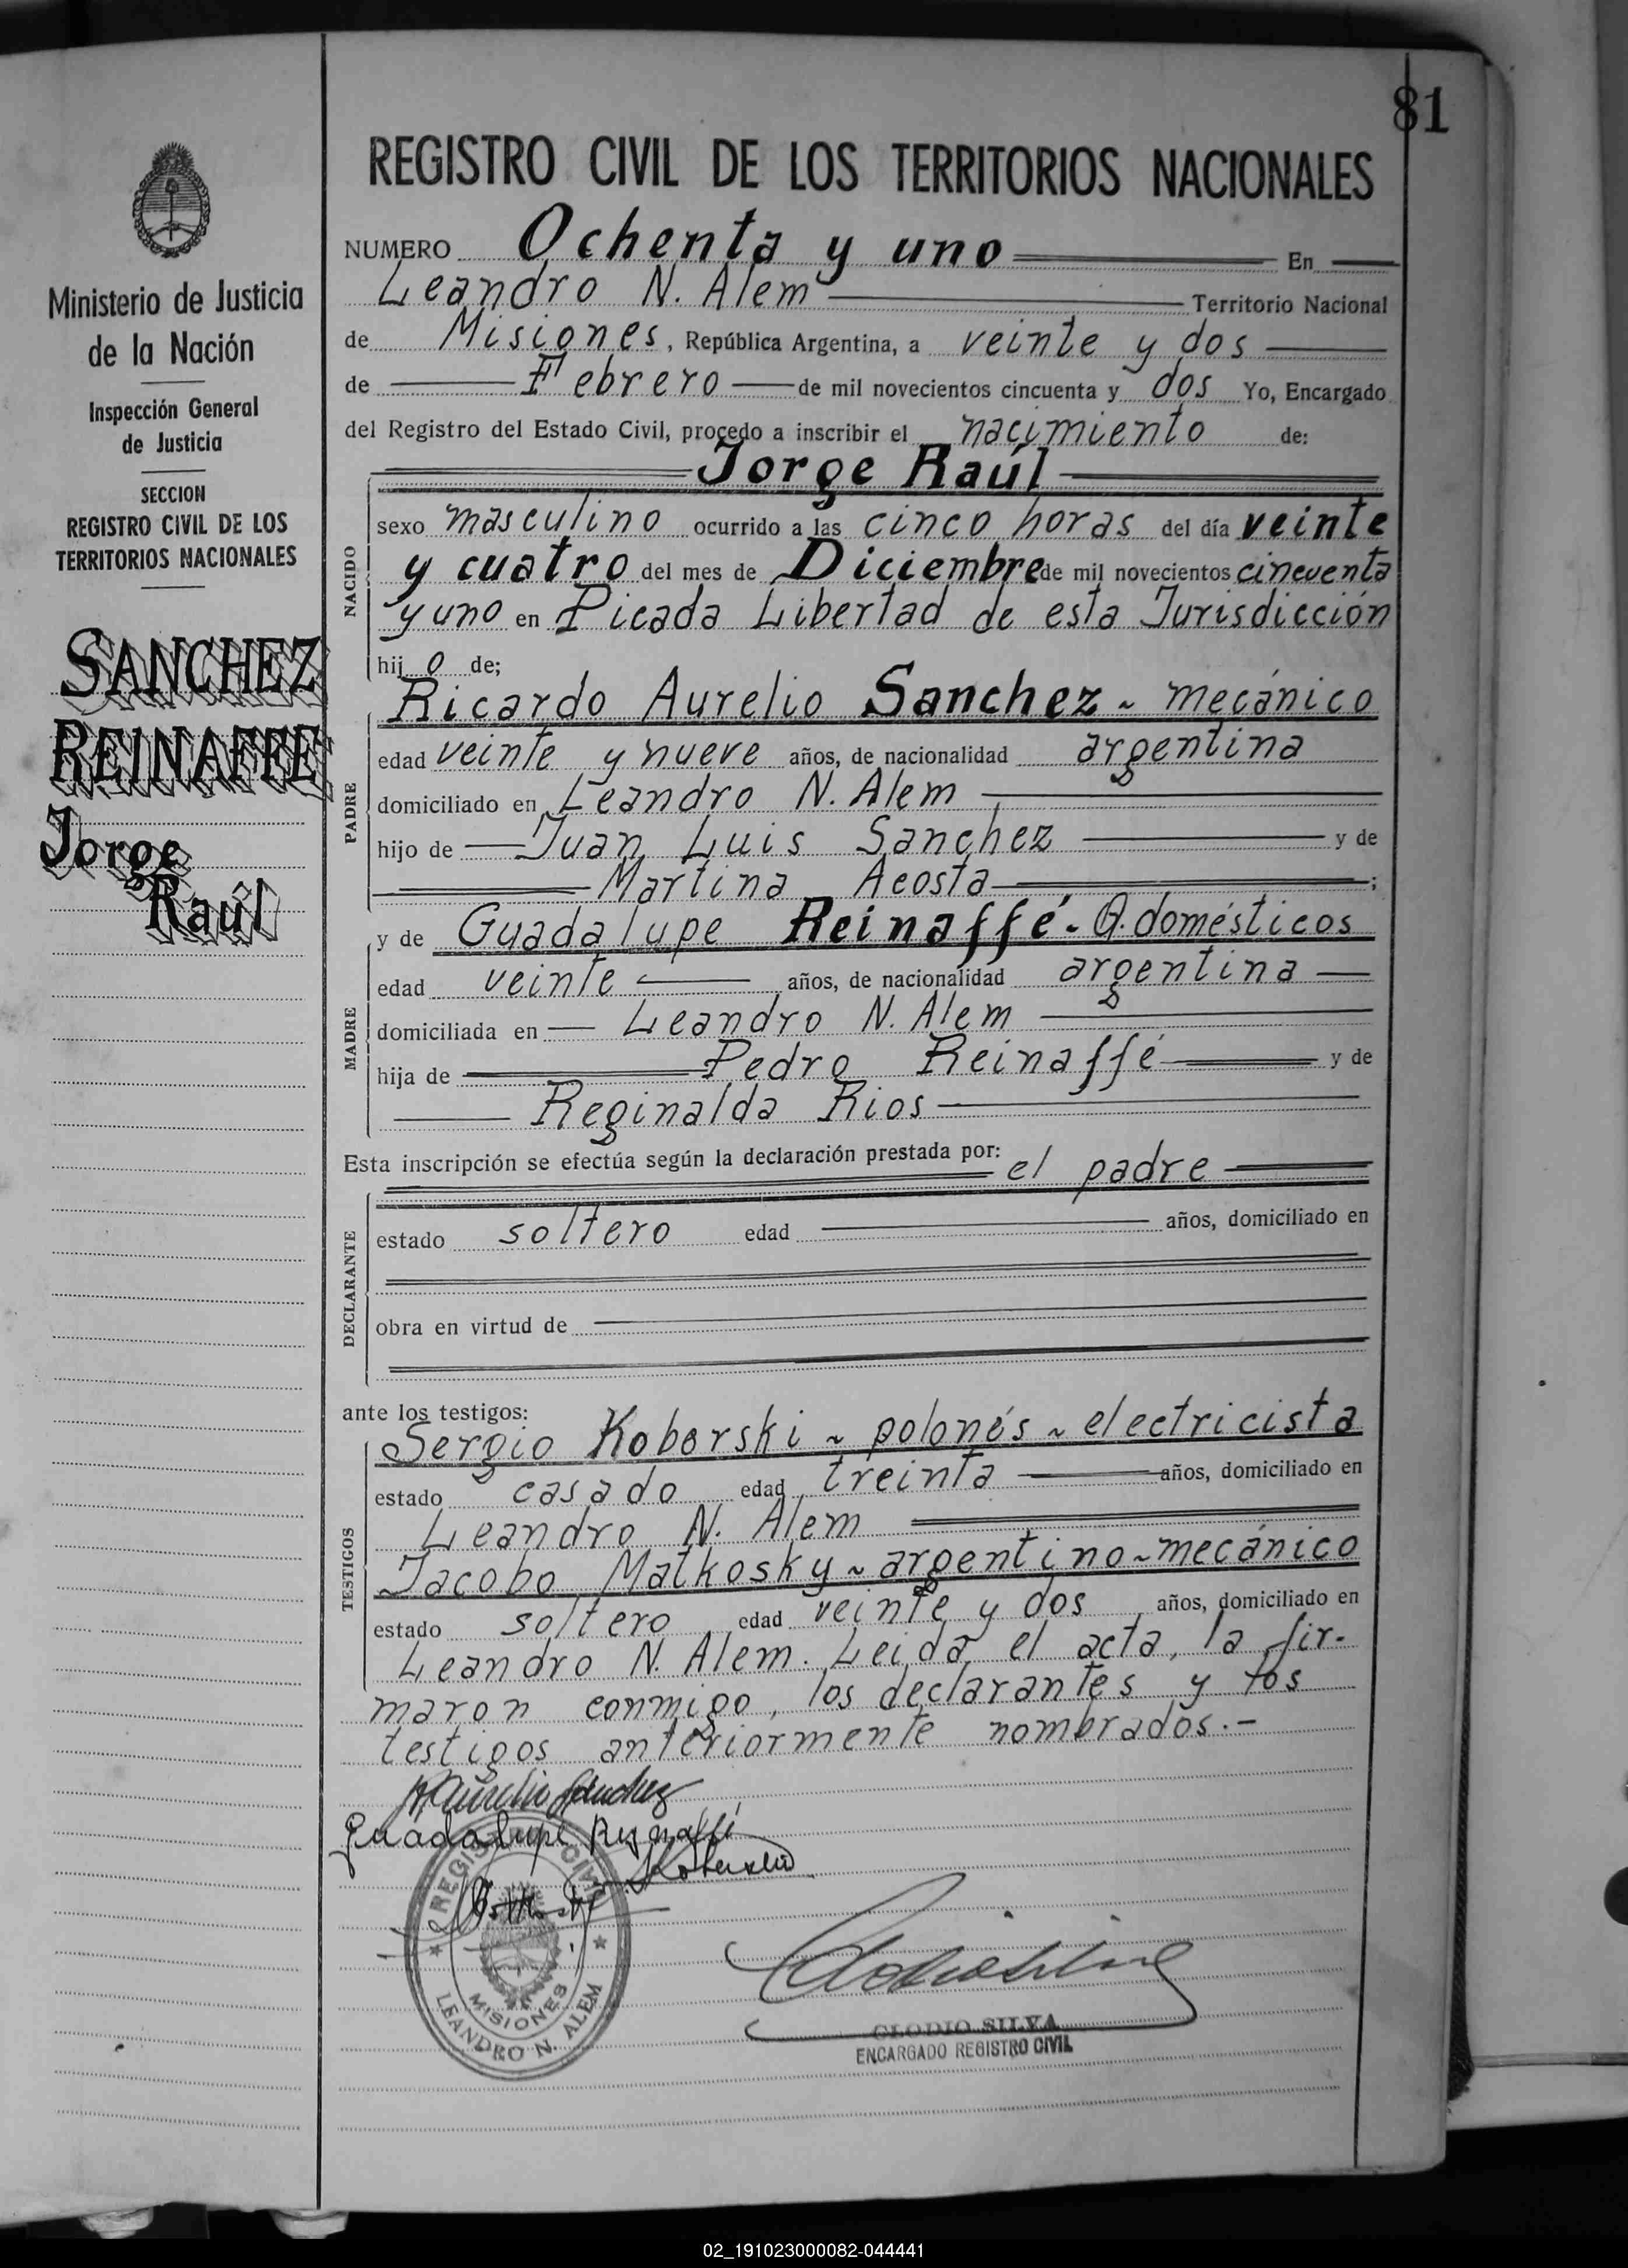 81
REGISTRO CIVIL DE LOS TERRITORIOS NACIONALES
Ministerio de Justicia
de la Nación
Inspección General
de Justicia
SECCION
REGISTRO CIVIL DE LOS
TERRITORIOS NACIONALES
SANCHEZ
REINAFFE
Jorge
Raúl
NUMERO Ochenta y uno En
Leandro N. Alem Territorio Nacional
de Misiones, República Argentina, a veinte y dos
de Febrero de mil novecientos cincuenta y dos Yo, Encargado
del Registro del Estado Civil, procedo a inscribir el nacimiento de:
Jorge Raúl
NACIDO
sexo masculino ocurrido a las cinco horas del día veinte
y cuatro del mes de Diciembre de mil novecientos cincuenta
y uno en Picada Libertad de esta Jurisdicción
hij o de;
PADRE
Ricardo Aurelio Sanchez ~ mecánico
edad veinte y nueve años, de nacionalidad argentina
domiciliado en Leandro N. Alem
hijo de Juan Luis Sanchez y de
Martina Acosta ;
MADRE
y de Guadalupe Reinaffé - Q. domésticos
edad veinte años, de nacionalidad argentina
domiciliada en Leandro N. Alem
hija de Pedro Reinaffé y de
Reginalda Rios
Esta inscripción se efectúa según la declaración prestada por: el padre
DECLARANTE
estado soltero edad años, domiciliado en
obra en virtud de
ante los testigos:
TESTIGOS
Sergio Koborski ~ polonés ~ electricista
estado casado edad treinta años, domiciliado en
Leandro N. Alem
Jacobo Matkosky ~ argentino ~ mecánico
estado soltero edad veinte y dos años, domiciliado en
Leandro N. Alem. Leida el acta, la fir-
maron conmigo, los declarantes y los
testigos anteriormente nombrados.-
Aurelio Sanchez
Guadalupe Reynaffé
REGISTRO CIVIL
MISIONES
LEANDRO N. ALEM
CLODIO SILVA
ENCARGADO REGISTRO CIVIL
02_191023000082-044441